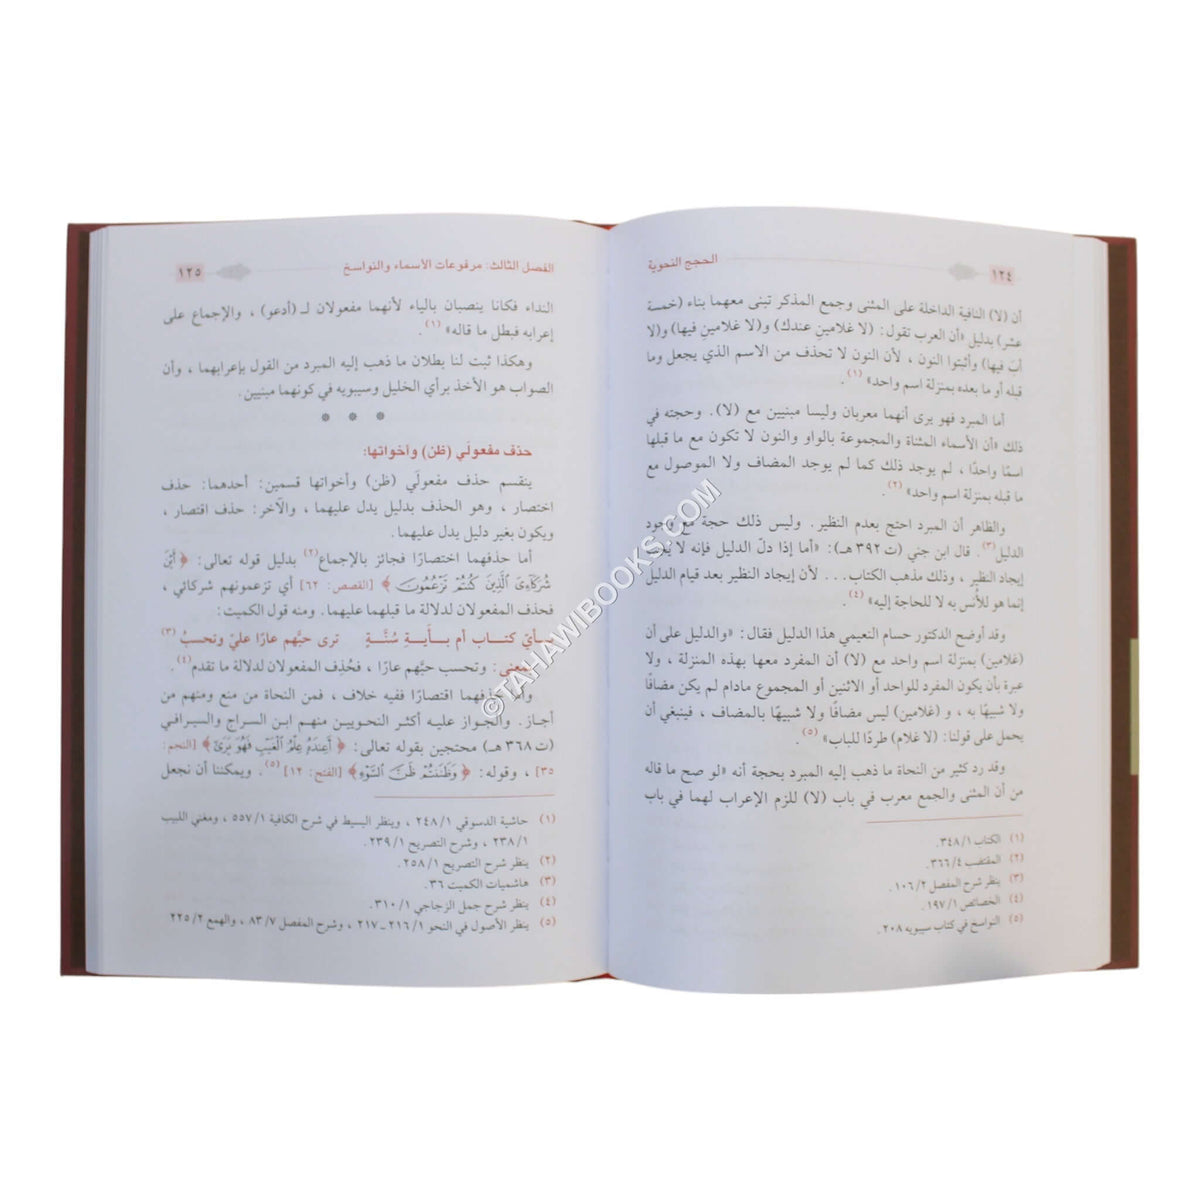 ١٢٤
الحجج النحوية
أن (لا) النافية الداخلة على المثنى وجمع المذكر تبنى معهما بناء (خمسة
عشر) بدليل «أن العرب تقول: (لا غلامينِ عندك) و(لا غلامينِ فيها) و(لا
أبَ فيها) وأثبتوا النون ، لأن النون لا تحذف من الاسم الذي يجعل وما
قبله أو ما بعده بمنزلة اسم واحد» (١) .
أما المبرد فهو يرى أنهما معربان وليسا مبنيين مع (لا). وحجته في
ذلك «أن الأسماء المثناة والمجموعة بالواو والنون لا تكون مع ما قبلها
اسمًا واحدًا ، لم يوجد ذلك كما لم يوجد المضاف ولا الموصول مع
ما قبله بمنزلة اسم واحد» (٢) .
والظاهر أن المبرد احتج بعدم النظير. وليس ذلك حجة مع وجود
الدليل (٣) . قال ابن جني (ت ٣٩٢ هـ): «أما إذا دلّ الدليل فإنه لا يجب
إيجاد النظير ، وذلك مذهب الكتاب... لأن إيجاد النظير بعد قيام الدليل
إنما هو للأُنس به لا للحاجة إليه» (٤) .
وقد أوضح الدكتور حسام النعيمي هذا الدليل فقال: «والدليل على أن
(غلامين) بمنزلة اسم واحد مع (لا) أن المفرد معها بهذه المنزلة ، ولا
عبرة بأن يكون المفرد للواحد أو الاثنين أو المجموع مادام لم يكن مضافًا
ولا شبيهًا به ، و (غلامين) ليس مضافًا ولا شبيهًا بالمضاف ، فينبغي أن
يحمل على قولنا: (لا غلام) طردًا للباب» (٥) .
وقد رد كثير من النحاة ما ذهب إليه المبرد بحجة أنه «لو صح ما قاله
من أن المثنى والجمع معرب في باب (لا) للزم الإعراب لهما في باب
(١) الكتاب ١/ ٣٤٨.
(٢) المقتضب ٤/ ٣٦٦.
(٣) ينظر شرح المفصل ٢/ ١٠٦.
(٤) الخصائص ١/ ١٩٧.
(٥) النواسخ في كتاب سيبويه ٢٠٨.
الفصل الثالث: مرفوعات الأسماء والنواسخ
١٢٥
النداء فكانا ينصبان بالياء لأنهما مفعولان لـ (أدعو) ، والإجماع على
إعرابه فبطل ما قاله» (١) .
وهكذا ثبت لنا بطلان ما ذهب إليه المبرد من القول بإعرابهما ، وأن
الصواب هو الأخذ برأي الخليل وسيبويه في كونهما مبنيين.
* * *
حذف مفعولَي (ظن) وأخواتها:
ينقسم حذف مفعولَي (ظن) وأخواتها قسمين: أحدهما: حذف
اختصار ، وهو الحذف بدليل يدل عليهما ، والآخر: حذف اقتصار ،
ويكون بغير دليل يدل عليهما.
أما حذفهما اختصارًا فجائز بالإجماع(٢) بدليل قوله تعالى: ﴿ أَيْنَ
شُرَكَآءِىَ ٱلَّذِينَ كُنتُمْ تَزْعُمُونَ ﴾ [القصص: ٦٢] أي تزعمونهم شركائي ،
فحذف المفعولان لدلالة ما قبلهما عليهما. ومنه قول الكميت:
بـأيّ كتـاب أم بـأيـةِ سُنَّـةٍ ترى حبَّهم عارًا عليّ وتحسبُ (٣)
المعنى: وتحسب حبَّهم عارًا ، فحُذف المفعولان لدلالة ما تقدم(٤) .
وأما حذفهما اقتصارًا ففيه خلاف ، فمن النحاة من منع ومنهم من
أجاز. والجواز عليه أكثر النحويين منهم ابن السراج والسيرافي
(ت ٣٦٨ هـ) محتجين بقوله تعالى: ﴿ أَعِندَهُۥ عِلْمُ ٱلْغَيْبِ فَهُوَ يَرَىٰٓ ﴾ [النجم:
٣٥] ، وقوله: ﴿ وَظَنَنتُمْ ظَنَّ ٱلسَّوْءِ ﴾ [الفتح: ١٢] (٥) . ويمكننا أن نجعل
(١) حاشية الدسوقي ١/ ٢٤٨ ، وينظر البسيط في شرح الكافية ١/ ٥٥٧ ، ومغني اللبيب
١/ ٢٣٨ ، وشرح التصريح ١/ ٢٣٩.
(٢) ينظر شرح التصريح ١/ ٢٥٨.
(٣) هاشميات الكميت ٣٦.
(٤) ينظر شرح جمل الزجاجي ١/ ٣١٠.
(٥) ينظر الأصول في النحو ١/ ٢١٦ـ٢١٧ ، وشرح المفصل ٧/ ٨٣ ، والهمع ٢/ ٢٢٥
©TAHAWIBOOKS.COM